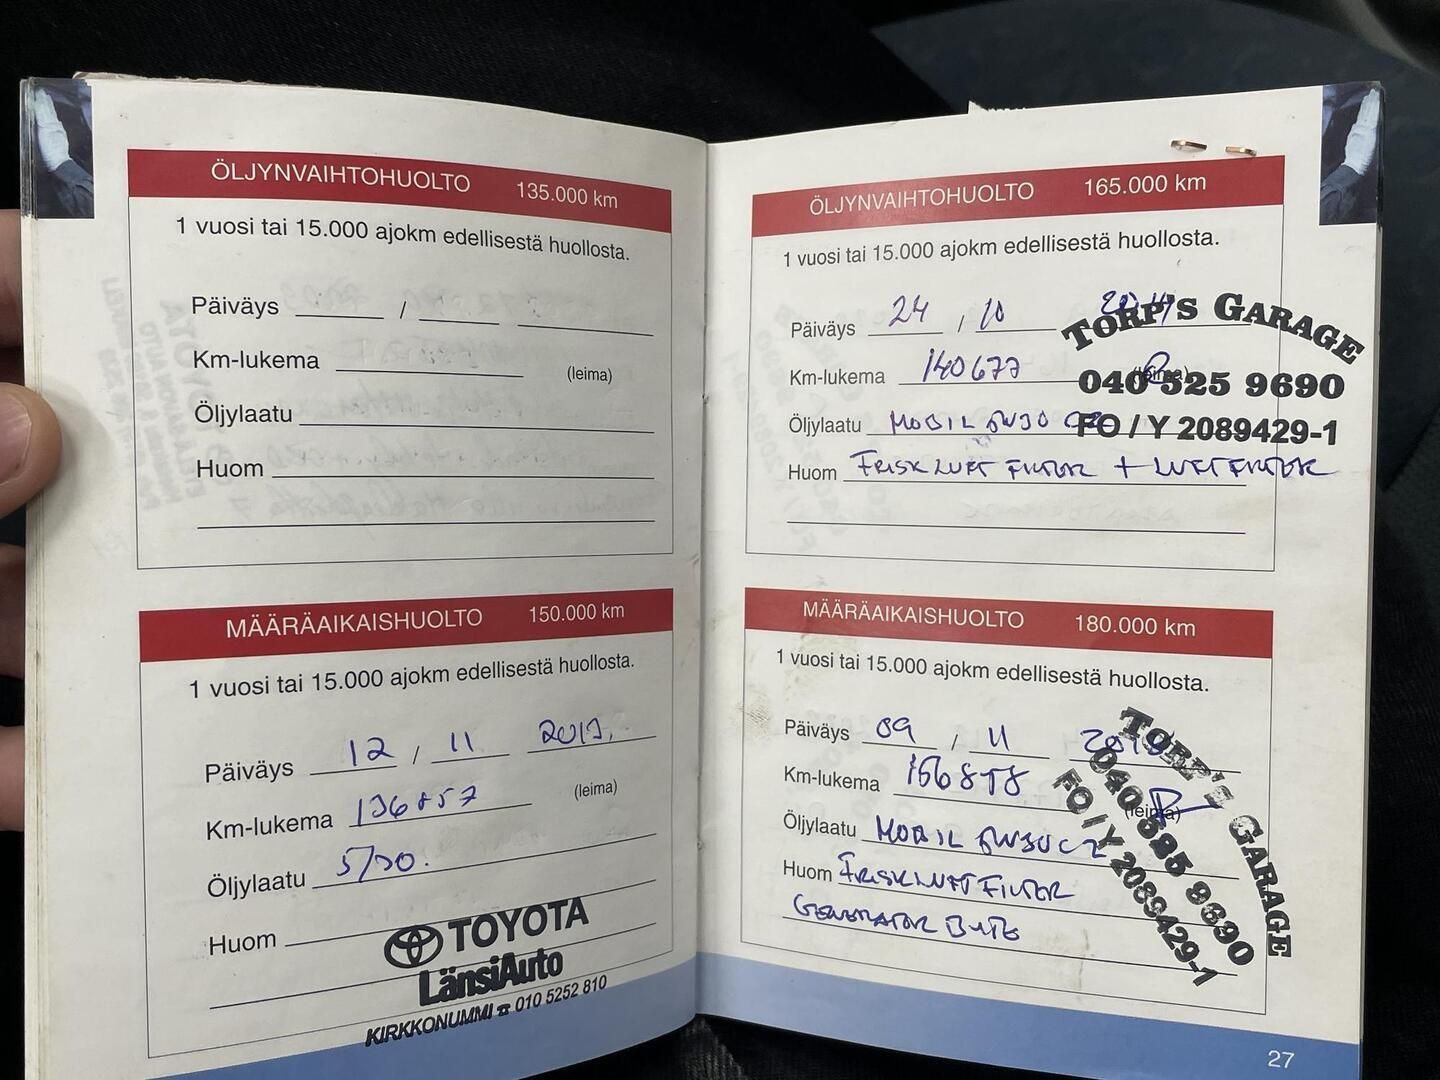 ÖLJYNVAIHTOHUOLTO 135.000 km
1 vuosi tai 15.000 ajokm edellisestä huollosta.
Päiväys /
Km-lukema (leima)
Öljylaatu
Huom
MÄÄRÄAIKAISHUOLTO 150.000 km
1 vuosi tai 15.000 ajokm edellisestä huollosta.
Päiväys 12 / 11 2013.
Km-lukema 136857 (leima)
Öljylaatu 5/30.
Huom
TOYOTA
LänsiAuto
KIRKKONUMMI ☎ 010 5252 810
ÖLJYNVAIHTOHUOLTO 165.000 km
1 vuosi tai 15.000 ajokm edellisestä huollosta.
Päiväys 24 / 10 2014
TORP'S GARAGE
Km-lukema 140677 (leima)
040 525 9690
Öljylaatu MOBIL 5W30 C2
FO / Y 2089429-1
Huom FRISKLUFT FILTER + LUFTFILTER
MÄÄRÄAIKAISHUOLTO 180.000 km
1 vuosi tai 15.000 ajokm edellisestä huollosta.
Päiväys 09 / 11
Km-lukema 156858 (leima)
Öljylaatu MOBIL 5W30 C2
Huom FRISKLUFT FILTER
GENERATOR BYTE
TORP'S GARAGE
040 525 9690
FO / Y 2089429-1
27